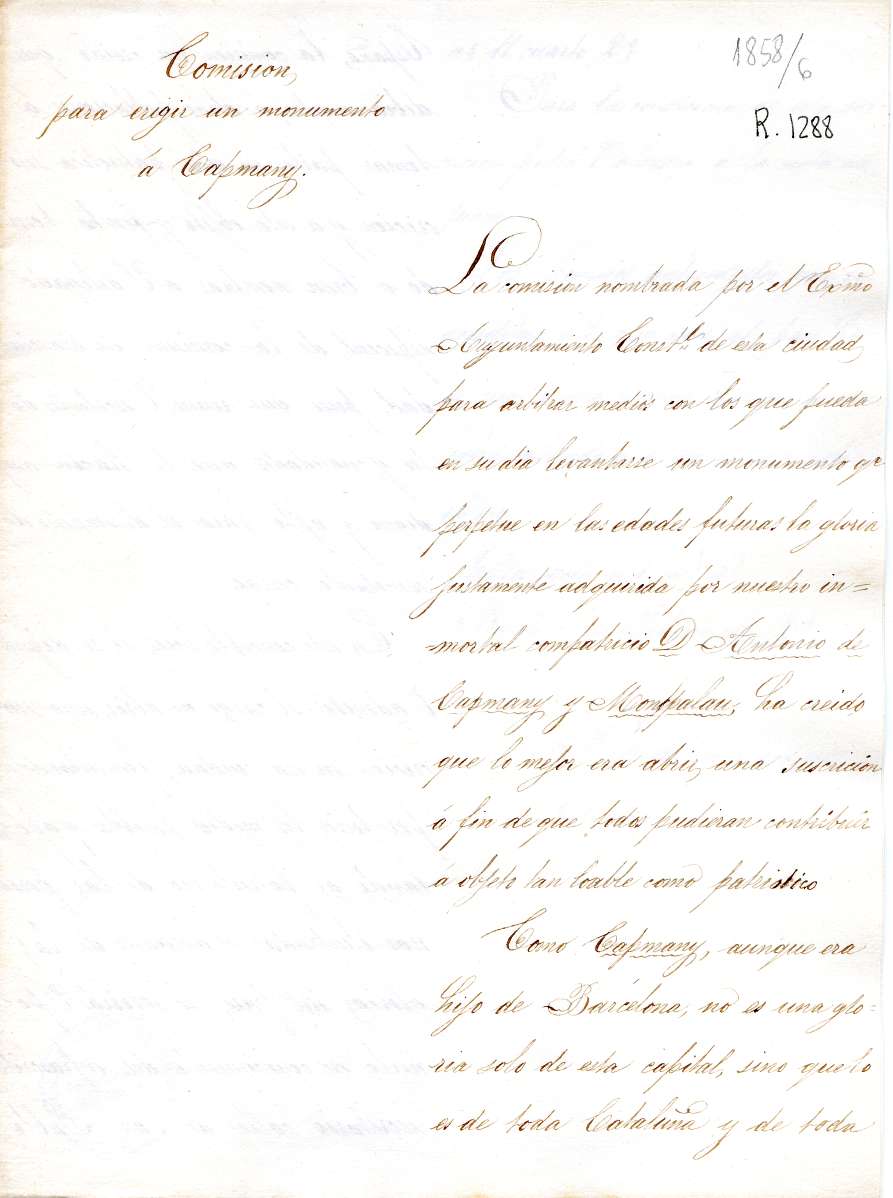 Comision,
para erigir un monumento
á Capmany.
1858/6
R. 1288
La comision nombrada por el Exmo
Ayuntamiento Constl. de esta ciudad,
para arbitrar medios con los que pueda
en su dia levantarse un monumento qe
perpetue en las edades futuras la gloria
justamente adquirida por nuestro in=
mortal compatricio D Antonio de
Capmany y Montpalau, ha creido
que lo mejor era abrir una suscricion
á fin de que todos pudieran contribuir
á objeto tan loable como patriotico
Como Capmany, aunque era
hijo de Barcelona, no es una glo=
ria solo de esta capital, sino que lo
es de toda Cataluña y de toda